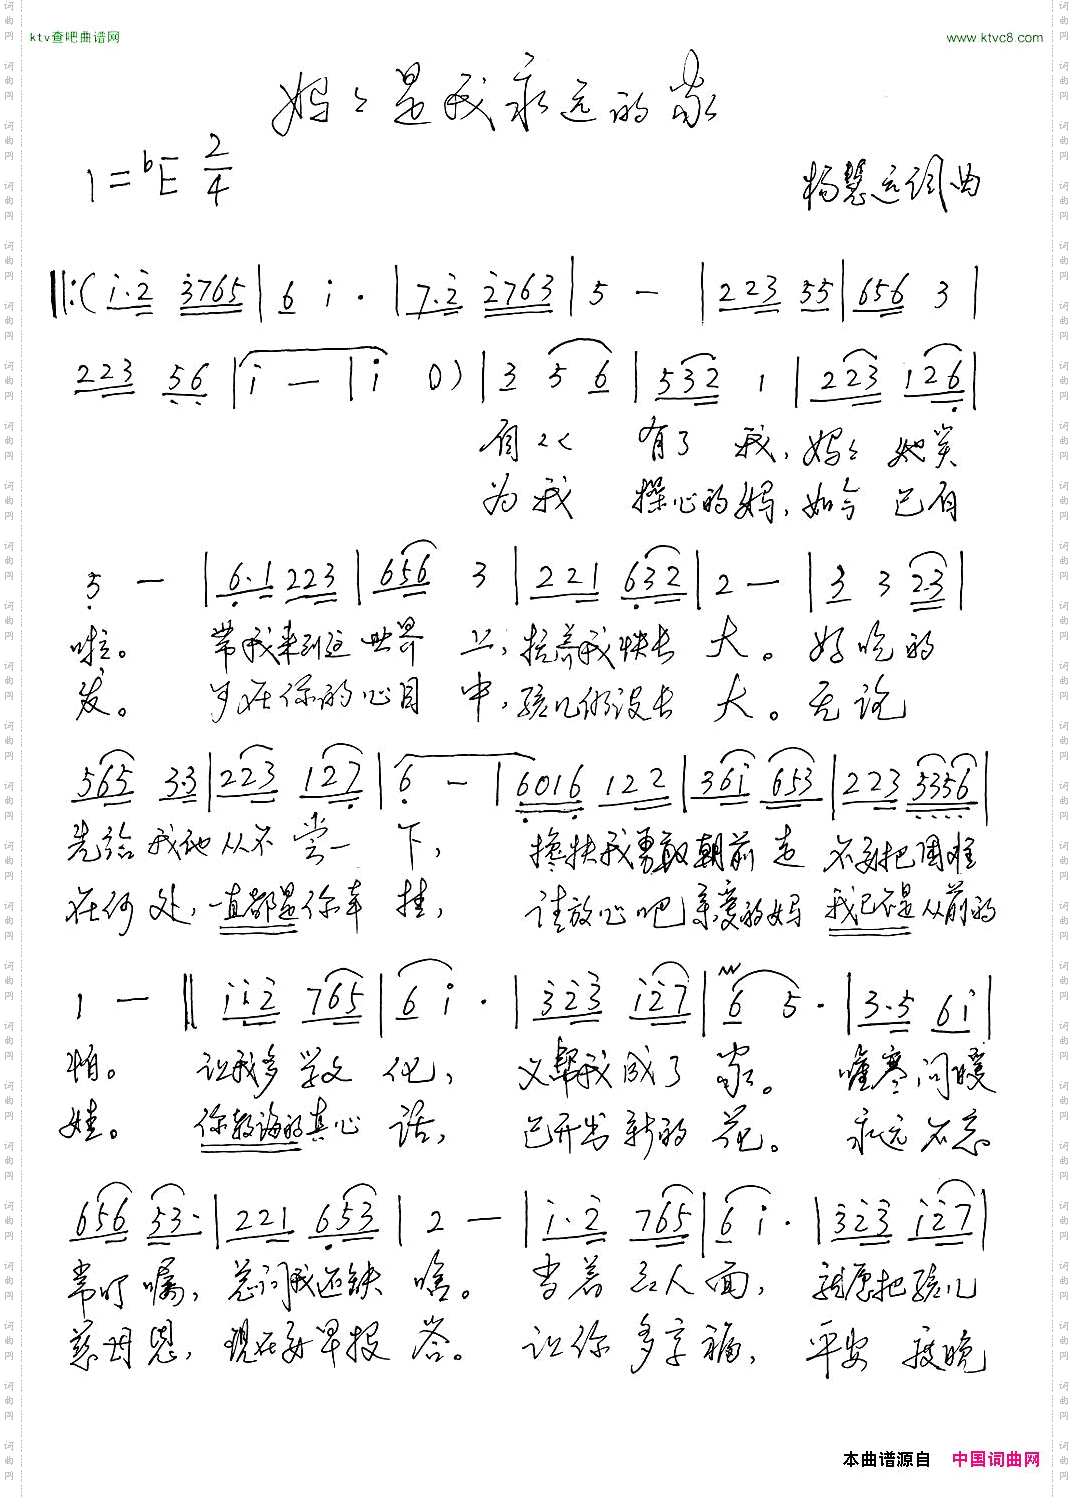 ktv查吧曲谱网
www.ktvc8.com
妈々是我永远的家
1=bE 2/4
杨慧远词曲
‖:( i·2 3765 | 6 i · | 7·2 2763 | 5 — | 223 55 | 656 3 |
223 56 | i — | i 0) | 3 5 6 | 532 1 | 223 126 |
有了我,妈々她笑
为我 操心的妈,如今已有
5 — | 6·1 223 | 656 3 | 221 632 | 2 — | 3 3 2·3 |
啦。 带我来到这世界上,培养我快长大。好吃的
发。 在你的心目中,孩儿仍没长大。无论
565 3·3 | 223 127 | 6 — | 6016 122 | 36i 653 | 223 5356 |
先给我她从不尝一下, 搀扶我勇敢朝前走 不要把困难
在何处,一直都是你牵挂, 请放心吧亲爱的妈 我已不是从前的
1 — ‖ ii2 765 | 6 i · | 323 i27 | 6 5 · | 3·5 6i |
怕。 让我多学文化, 又帮我成了家。 嘘寒问暖
娃。 你教诲的真心话, 已开出新的花。 永远不忘
656 53· | 221 653 | 2 — | i·2 765 | 6 i · | 323 i27 |
常叮嘱,总问我还缺啥。 当着众人面, 就愿把孩儿
慈母恩,现在要早报答。 让你多享福, 平安度晚
本曲谱源自 中国词曲网
词曲网